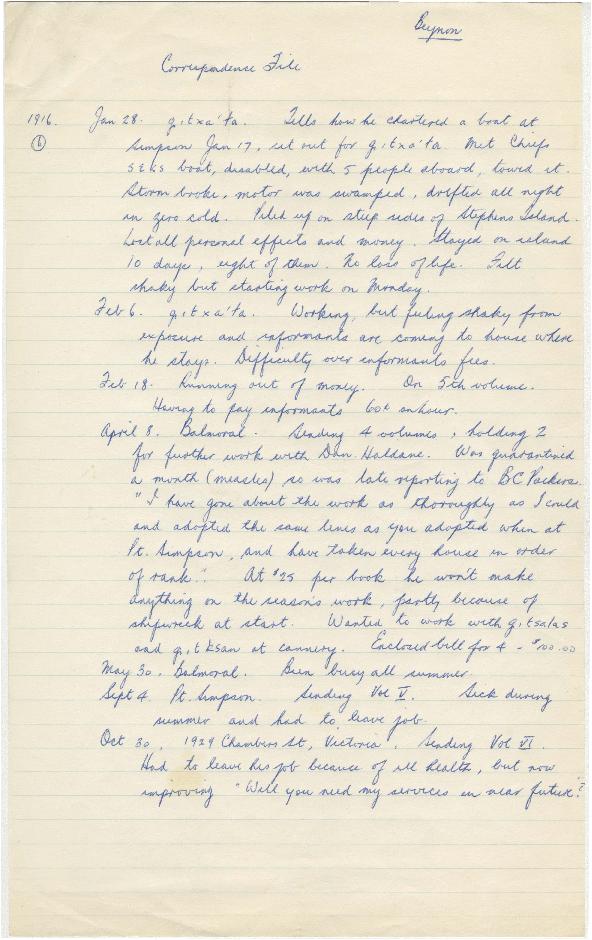 Beynon
Correspondence File
1916. Jan 28. g.itxa'ła. Tells how he chartered a boat at
(6) Simpson Jan 17, set out for g.itxa'ła. Met Chiefs
boat, disabled, with 5 people aboard, towed it.
Storm broke, motor was swamped, drifted all night
in zero cold. Piled up on steep sides of Stephens Island.
Lost all personal effects and money. Stayed on island
10 days, eight of them. No loss of life. Felt
shaky but starting work on Monday.
Feb 6. g.itxa'ła. Working, but feeling shaky from
exposure and informants are coming to house where
he stays. Difficulty over informants fees.
Feb 18. Running out of money. On 5th volume.
Having to pay informants 60¢ an hour.
April 8. Balmoral. Sending 4 volumes, holding 2
for further work with Dan. Haldane. Was quarantined
a month (measles) so was late reporting to BC Packers.
"I have gone about the work as thoroughly as I could
and adopted the same lines as you adopted when at
Pt. Simpson, and have taken every house in order
of rank." At $25 per book he won't make
anything on the seasons work, partly because of
shipwreck at start. Wanted to work with g.itsalas
and g.itksan at cannery. Enclosed bill for 4 - $100.00
May 30. Balmoral. Been busy all summer.
Sept 4. Pt. Simpson. Sending Vol V. Sick during
summer and had to leave job.
Oct 30, 1929 Chambers St, Victoria. Sending Vol VI.
Had to leave his job because of ill health, but now
improving "Will you need my services in near future?"